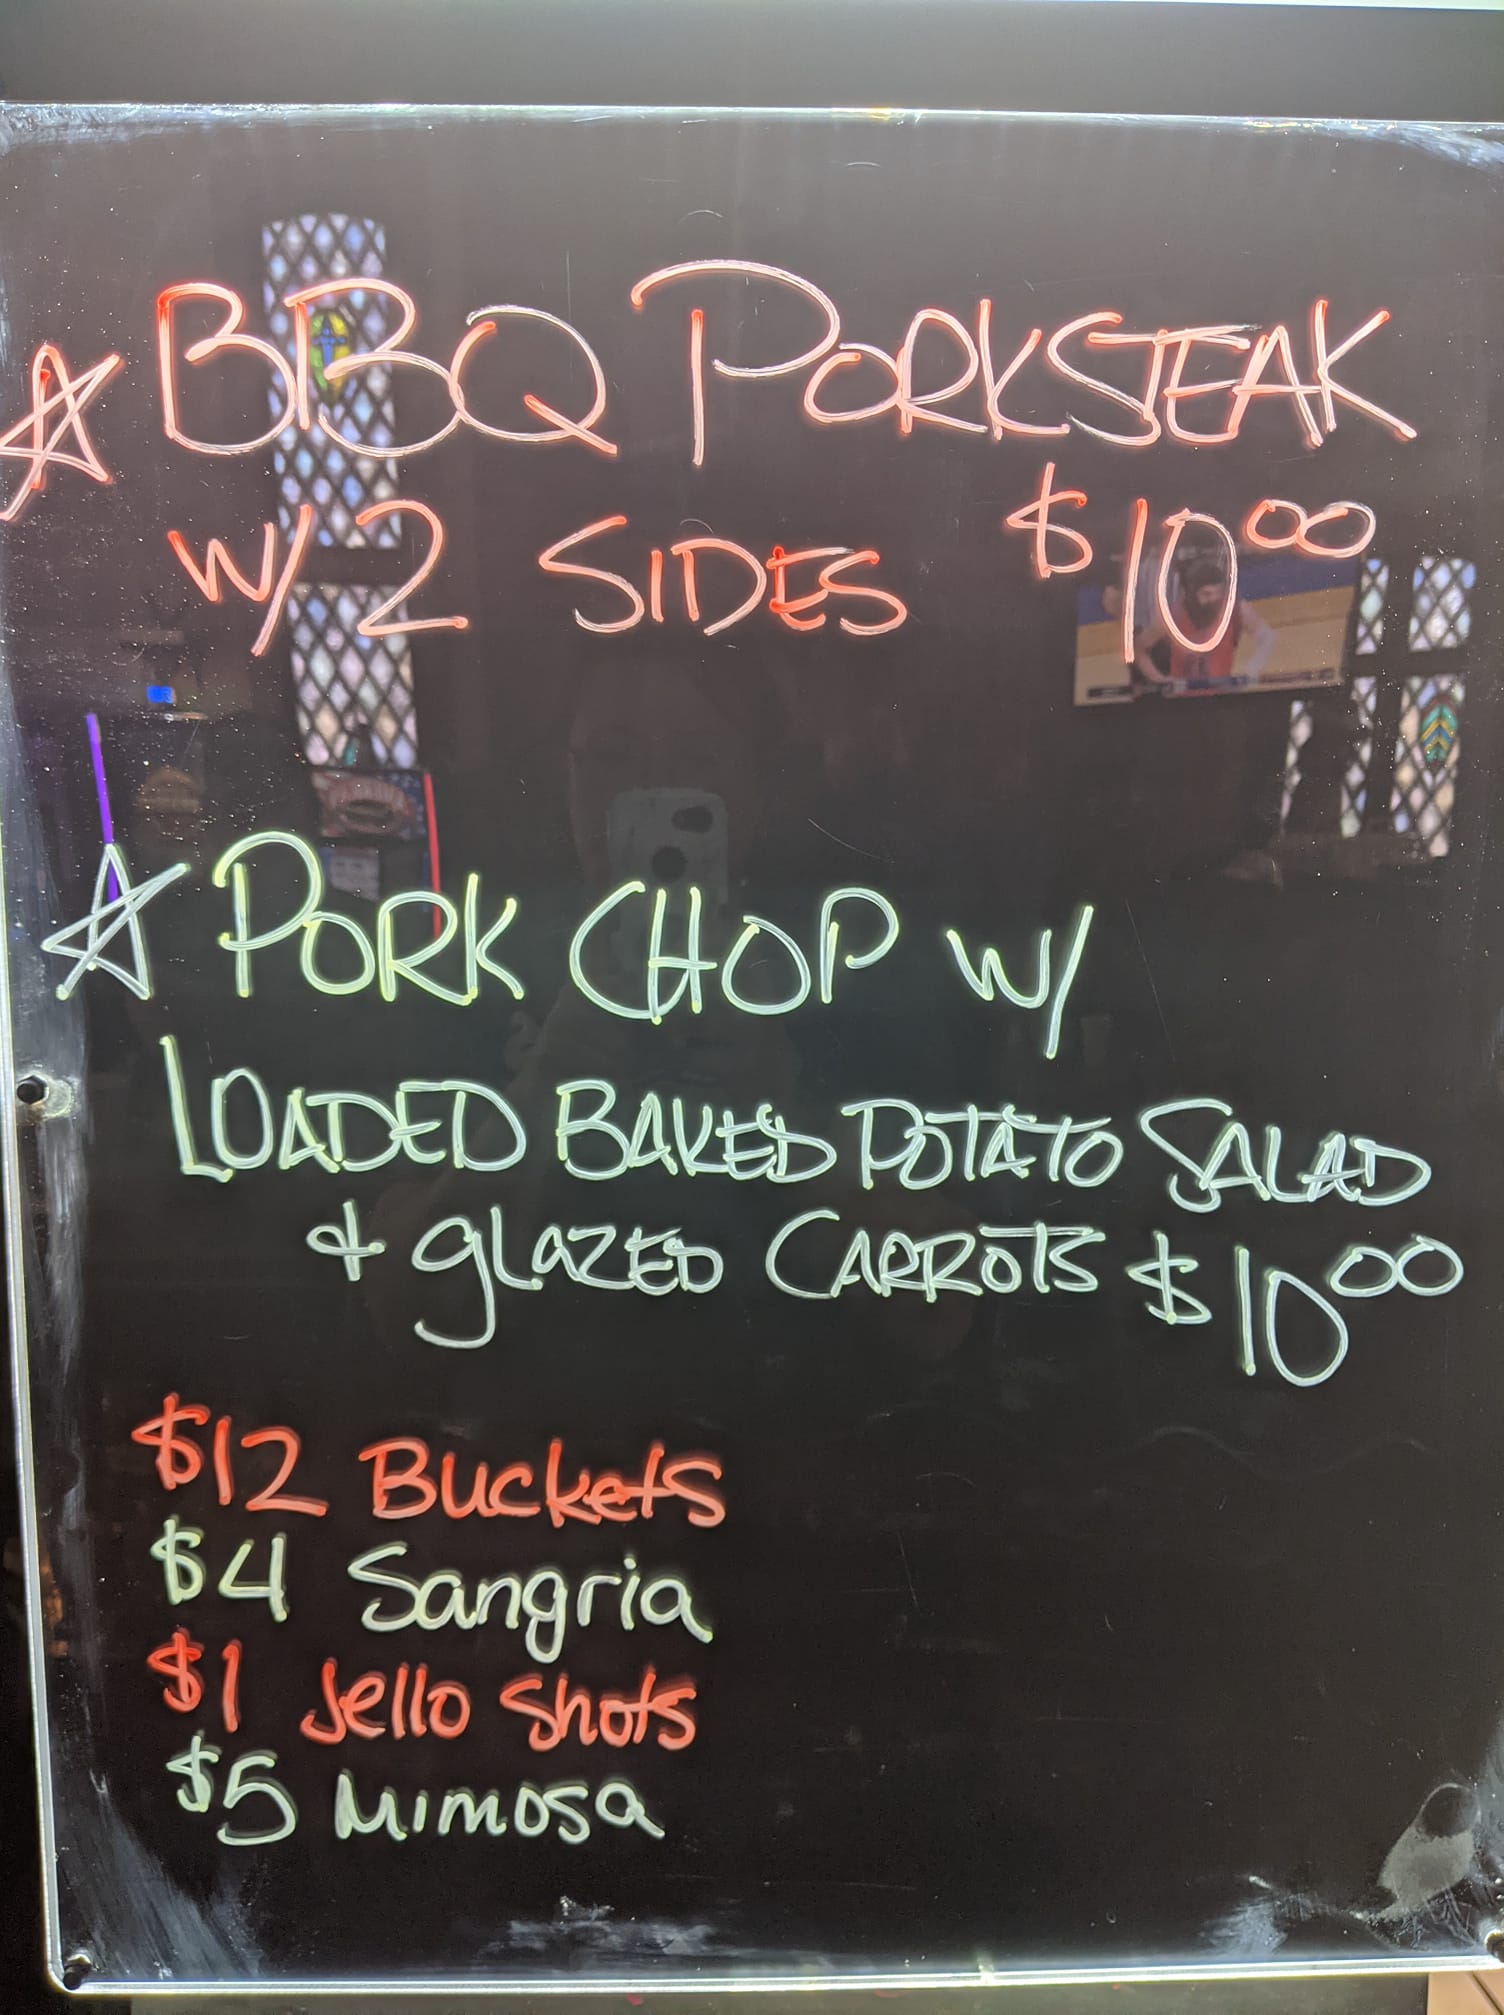 BBQ PORKSTEAK
W/ 2 SIDES $10⁰⁰
PORK CHOP W/
LOADED BAKED POTATO SALAD
& GLAZED CARROTS $10⁰⁰
$12 Buckets
$4 Sangria
$1 Jello Shots
$5 Mimosa